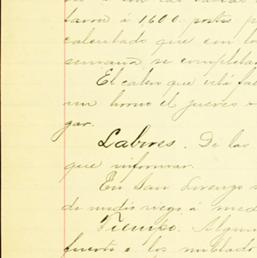 tarea á 1600 postes p
calculado que con lo
semana se completa
El calor que está ha
un horno el jueves
gar.
Labores. De las
que informar.
En San Lorenzo
de medio riego á med
Tiempo. Algun
fuerte á los nublado